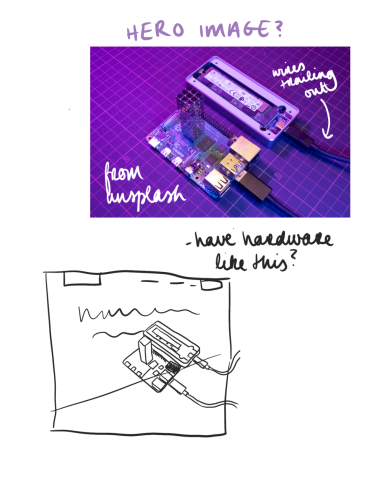 HERO IMAGE?
wires
trailing
out
from
unsplash
-have hardware
like this?